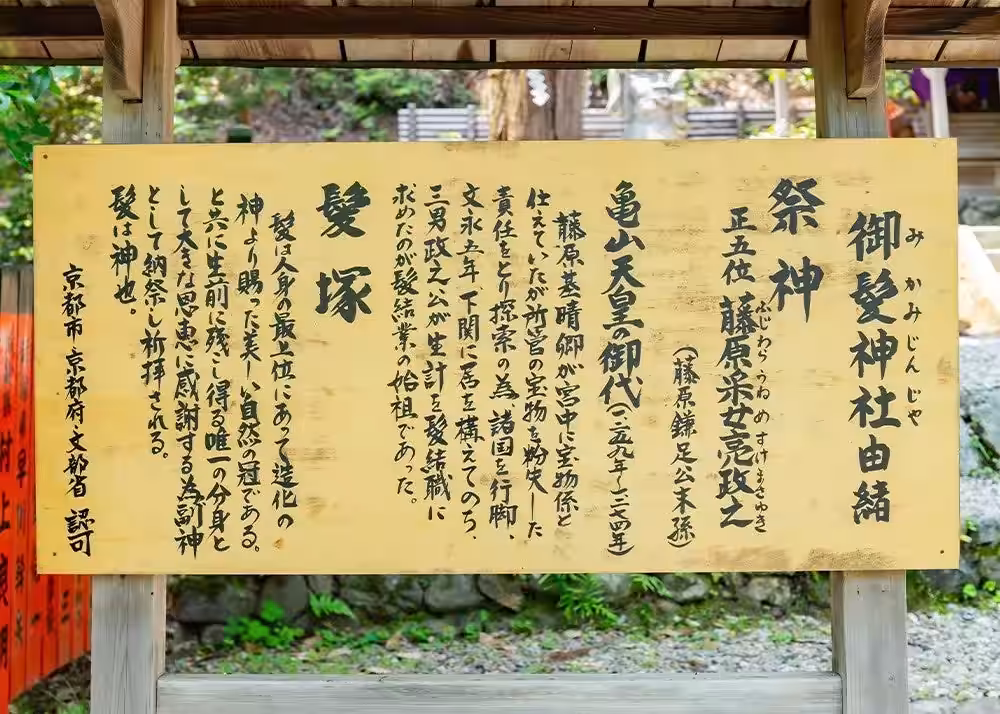 御髪神社由緒
みかみじんじゃ
祭神
正五位 藤原采女亮政之
ふじわらうねめすけまさゆき
(藤原鎌足公末孫)
亀山天皇の御代(一二五九年~一二七四年)
藤原基晴卿が宮中に宝物係と
仕えていたが所管の宝物を紛失した
責任をとり探索の為、諸国を行脚、
文永五年、下関に居を構えてのち、
三男政之公が生計を髪結職に
求めたのが髪結業の始祖であった。
髪塚
髪は人身の最上位にあって造化の
神より賜った美しい自然の冠である。
と共に生前に残こし得る唯一の分身と
して大きな恩恵に感謝する為副神
として納祭し祈拝される。
髪は神也。
京都市 京都府・文部省 認可